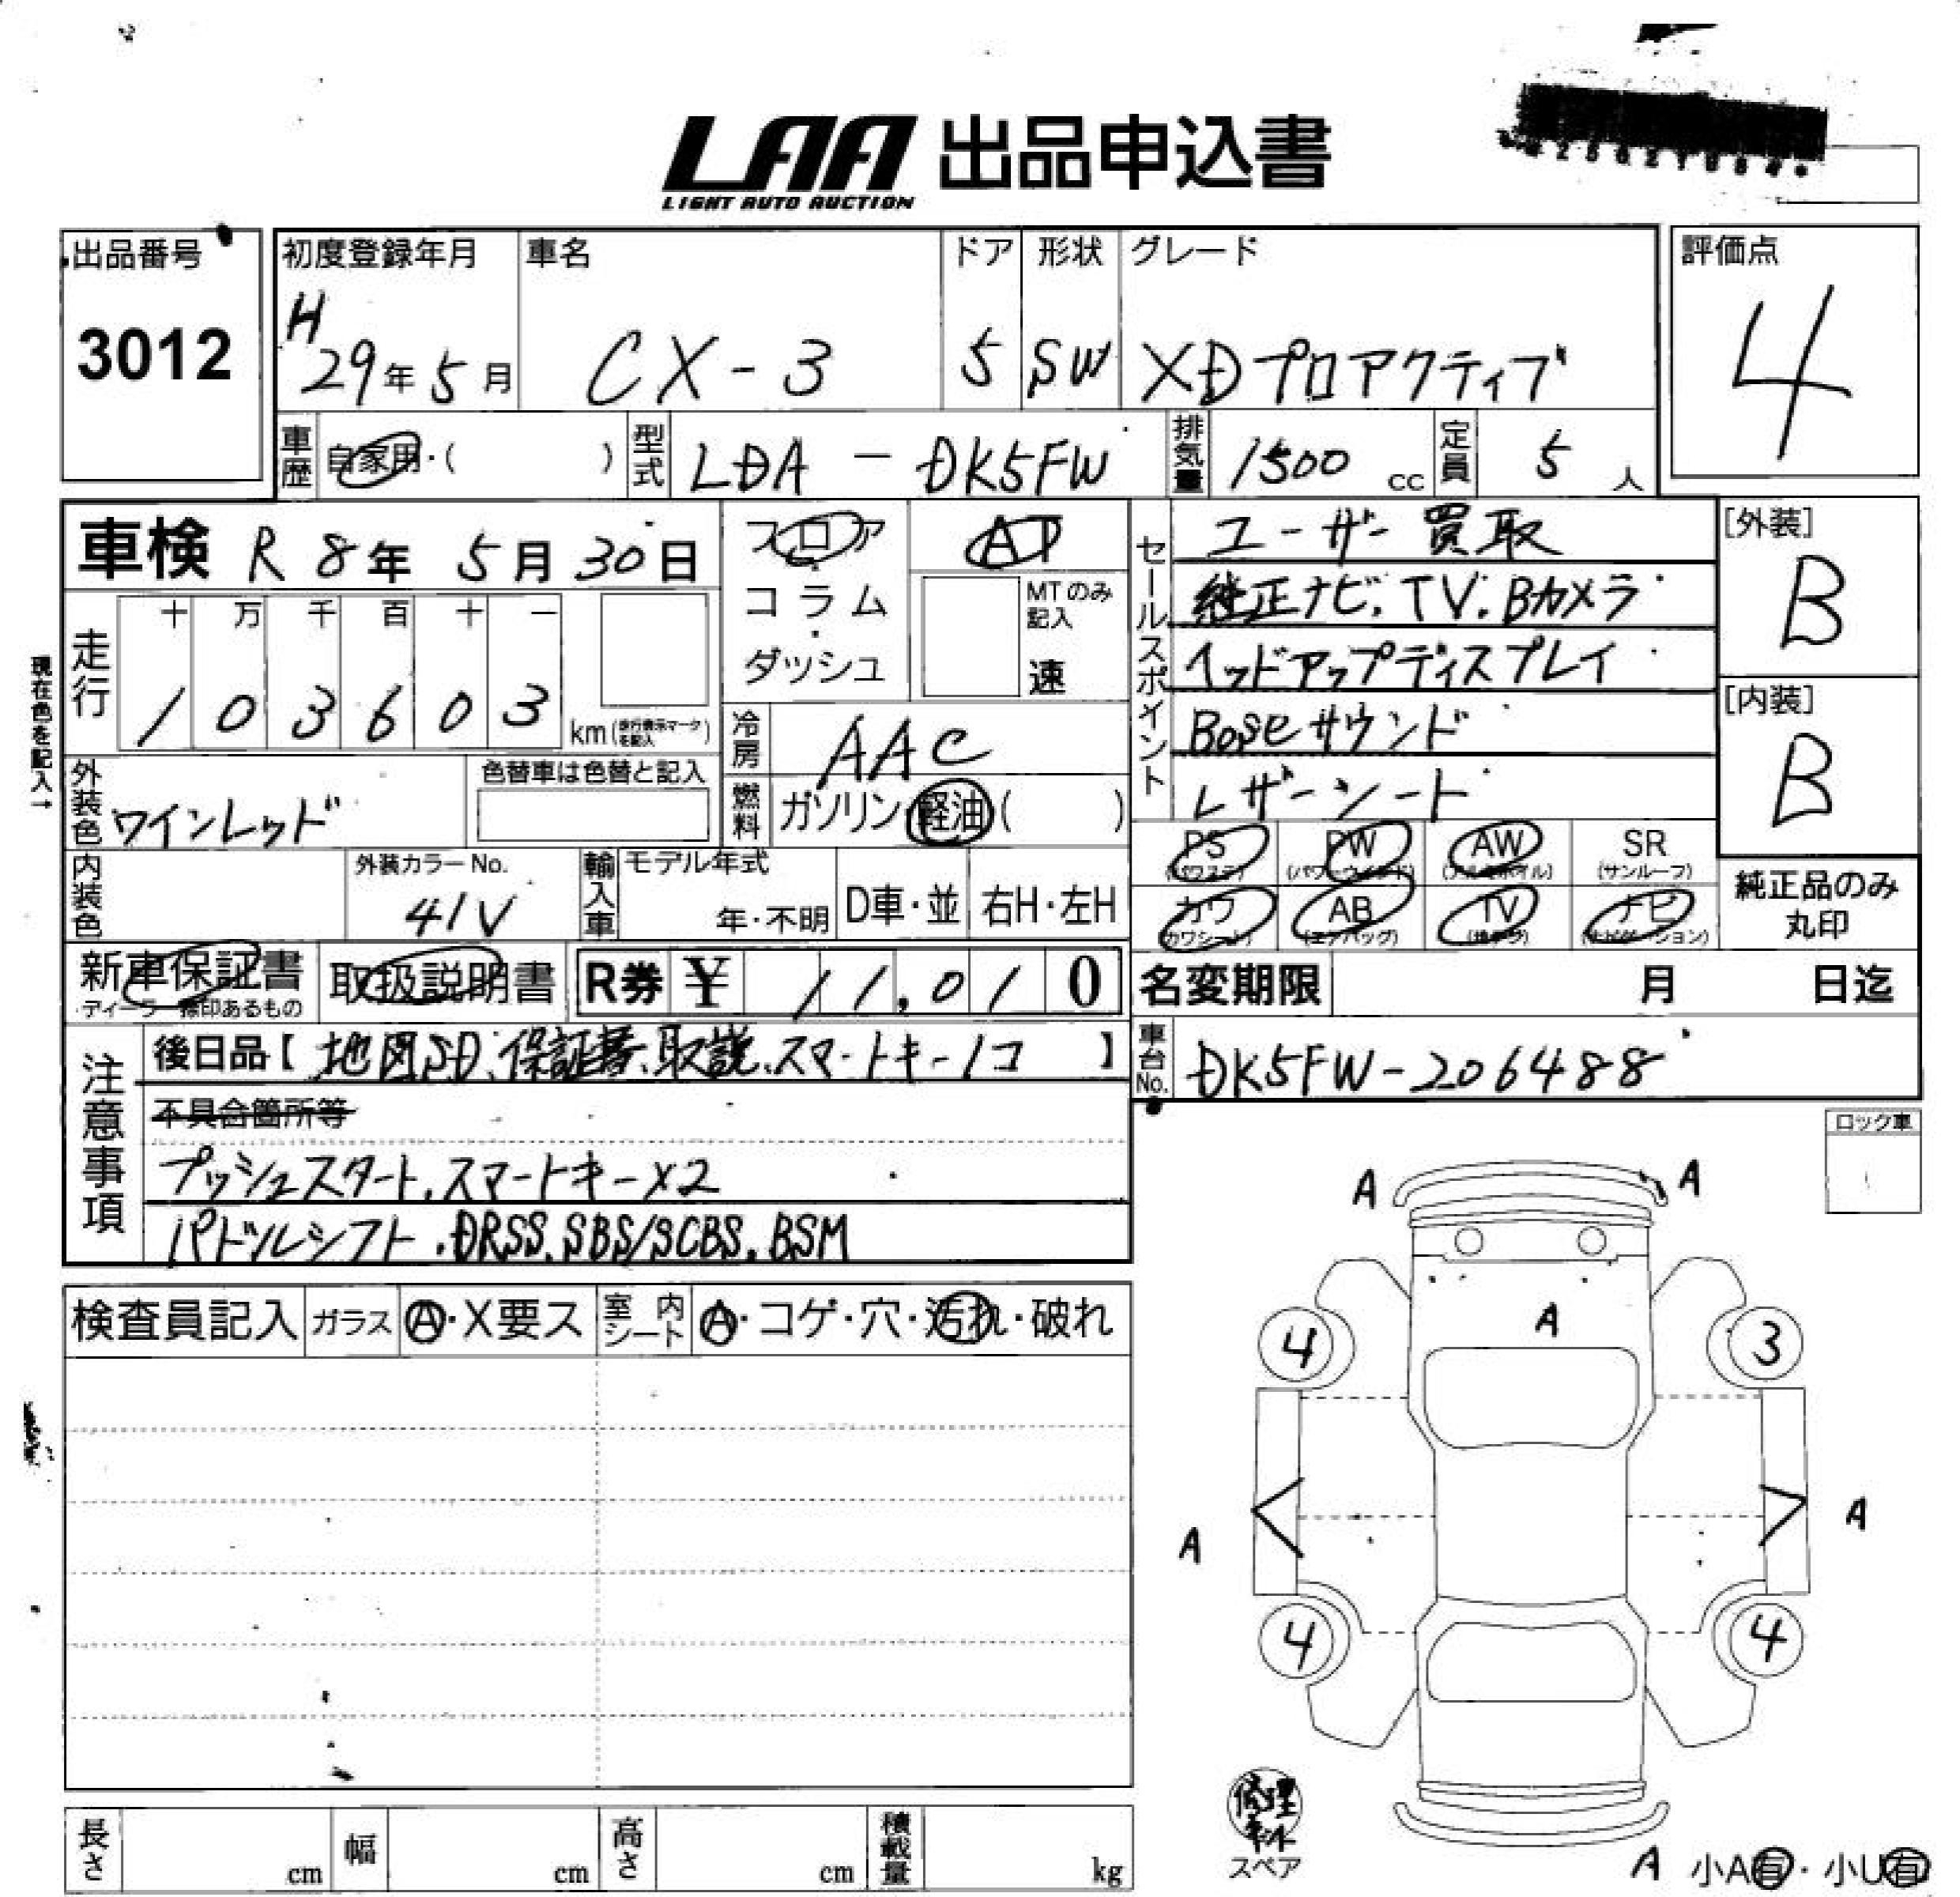 LAA 出品申込書
LIGHT AUTO AUCTION
出品番号
3012
初度登録年月
H
29年5月
車名
CX-3
ドア
5
形状
SW
グレード
XDプロアクティブ
評価点
4
車歴
自家用・( )
型式
LDA-DK5FW
排気量
1500 cc
定員
5 人
車検 R 8年 5月 30日
フロア
コラム
ダッシュ
AT
MTのみ記入
速
セールスポイント
ユーザー買取
純正ナビ.TV.Bカメラ
ヘッドアップディスプレイ
Boseサウンド
レザーシート
[外装]
B
[内装]
B
現在色を記入→
走行
十 万 千 百 十 一
1 0 3 6 0 3
km(走行表示マークを記入)
冷房
AAC
燃料
ガソリン 軽油 ( )
外装色
ワインレッド
色替車は色替と記入
内装色
外装カラーNo.
41V
輸入車
モデル年式
年・不明
D車・並
右H・左H
PS
(パワステ)
PW
(パワーウインド)
AW
(アルミホイル)
SR
(サンルーフ)
カワ
(カワシート)
AB
(エアバッグ)
TV
(地デジ)
ナビ
(ナビゲーション)
純正品のみ
丸印
新車保証書
ディーラー捺印あるもの
取扱説明書
R券 ¥ 11,010
名変期限 月 日迄
注意事項
後日品【 地図SD.保証書.取説.スマートキー1コ 】
車台No.
DK5FW-206488
不具合箇所等
プッシュスタート.スマートキーX2
パドルシフト.DRSS.SBS/SCBS.BSM
ロック車
検査員記入
ガラス
A・X要ス
室内シート
A・コゲ・穴・汚れ・破れ
A
A
A
4
3
A
A
4
4
修理キット
スペア
A 小A有・小U有
長さ cm
幅 cm
高さ cm
積載量 kg